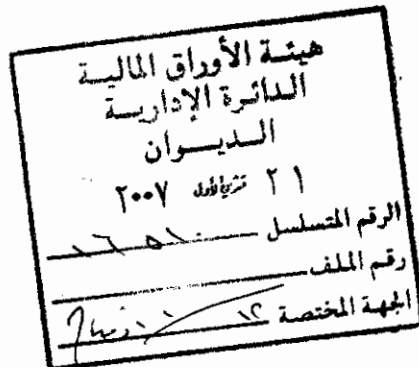 هيئة الأوراق المالية
الدائرة الإدارية
الديوان
٢١ تشرين الأول ٢٠٠٧
الرقم المتسلسل ١٦٥١٠
رقم الملف
الجهة المختصة ١٢